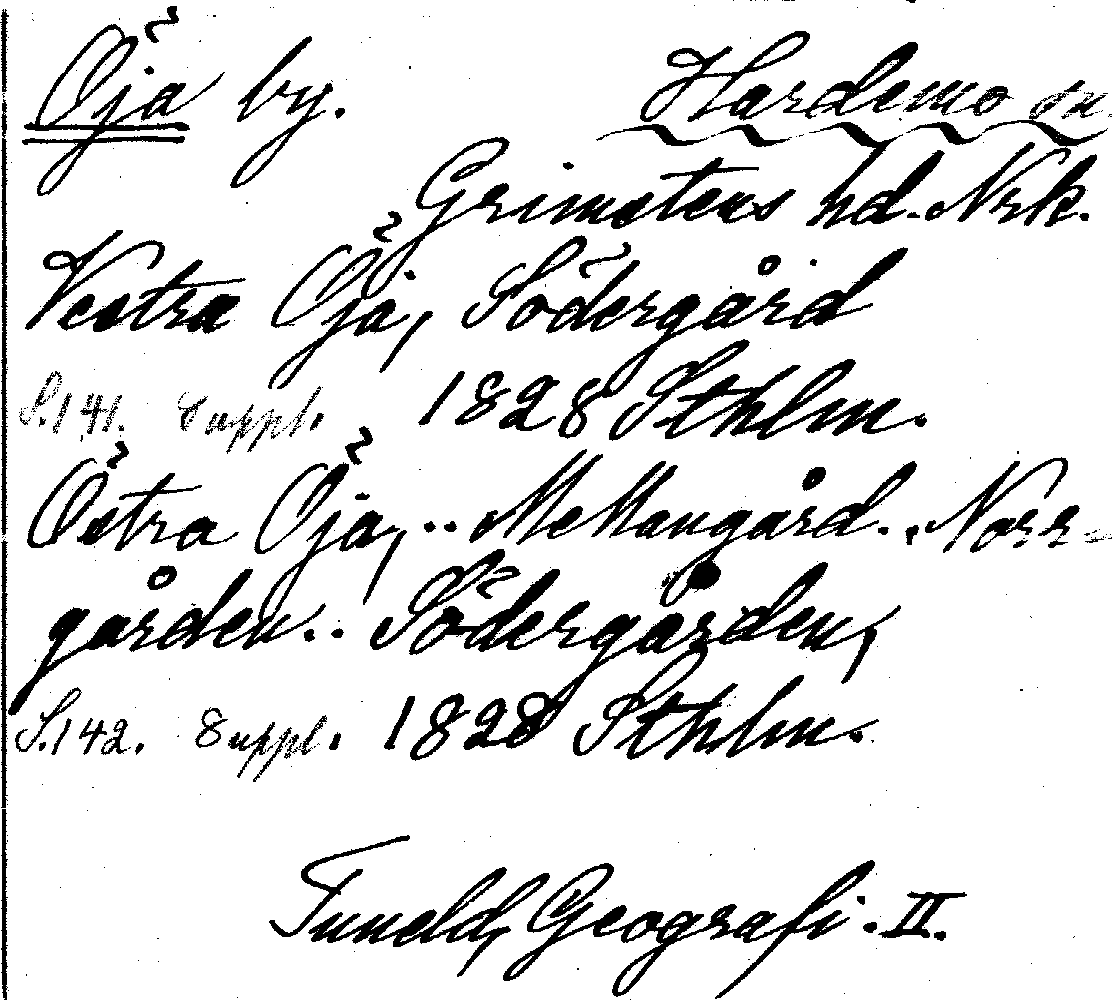 Öja by. Hardemo sn.
Grimstens hd. Nrk.
Vestra Öja, Södergård
S. 141. Suppl. 1828 Sthlm.
Östra Öja, .. Mellangård. .. Norr-
gården. .. Södergården,
S. 142. Suppl. 1828 Sthlm.
Tuneld, Geografi. II.